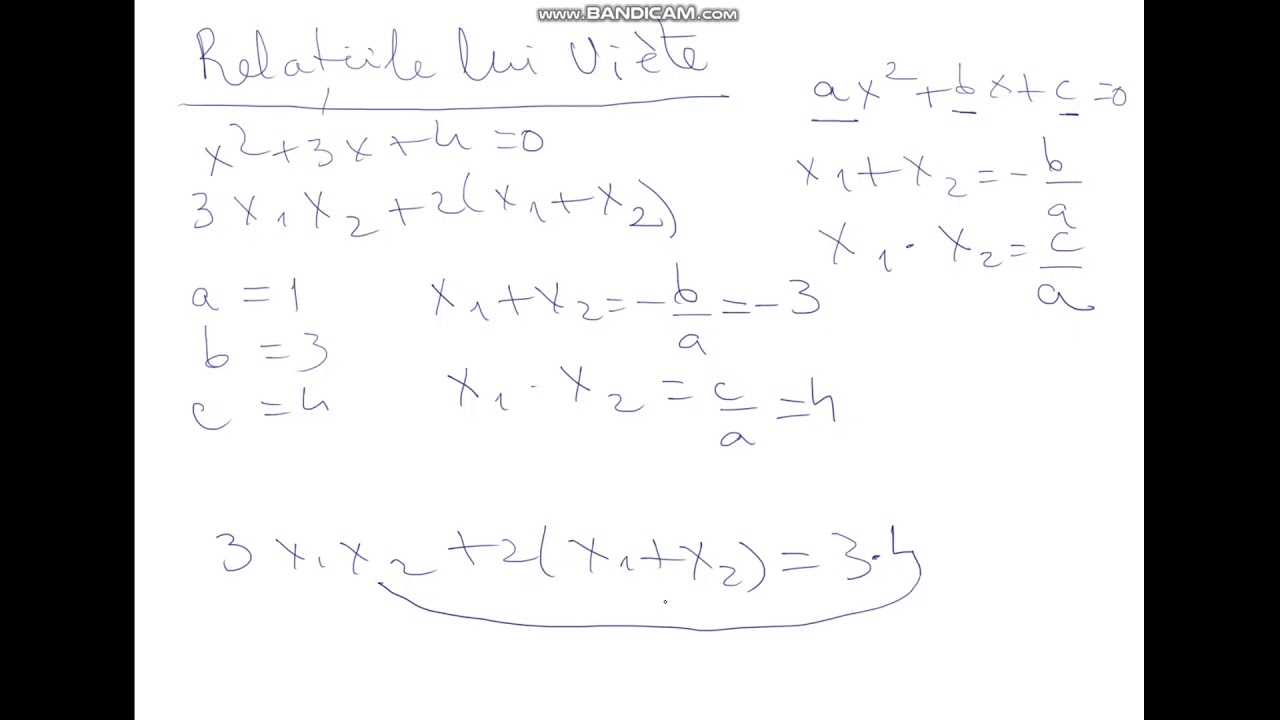 www.BANDICAM.com
Relațiile lui Viète
x²+3x+4=0
3x₁x₂+2(x₁+x₂)
a=1
b=3
c=4
x₁+x₂=-b/a=-3
x₁·x₂=c/a=4
ax²+bx+c=0
x₁+x₂=-b/a
x₁·x₂=c/a
3x₁x₂+2(x₁+x₂)=3·4